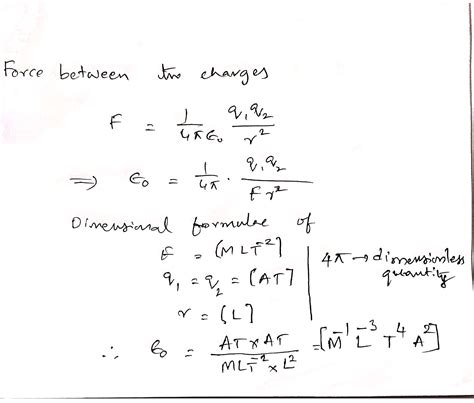 Force between two charges
F = 1/4πε₀ q₁q₂/r²
⇒ ε₀ = 1/4π · q₁q₂/Fr²
Dimensional formulae of
F = [MLT⁻²]
q₁ = q₂ = [AT]
r = [L]
4π → dimensionless
quantity
∴ ε₀ = AT×AT/MLT⁻²×L² = [M⁻¹ L⁻³ T⁴ A²]